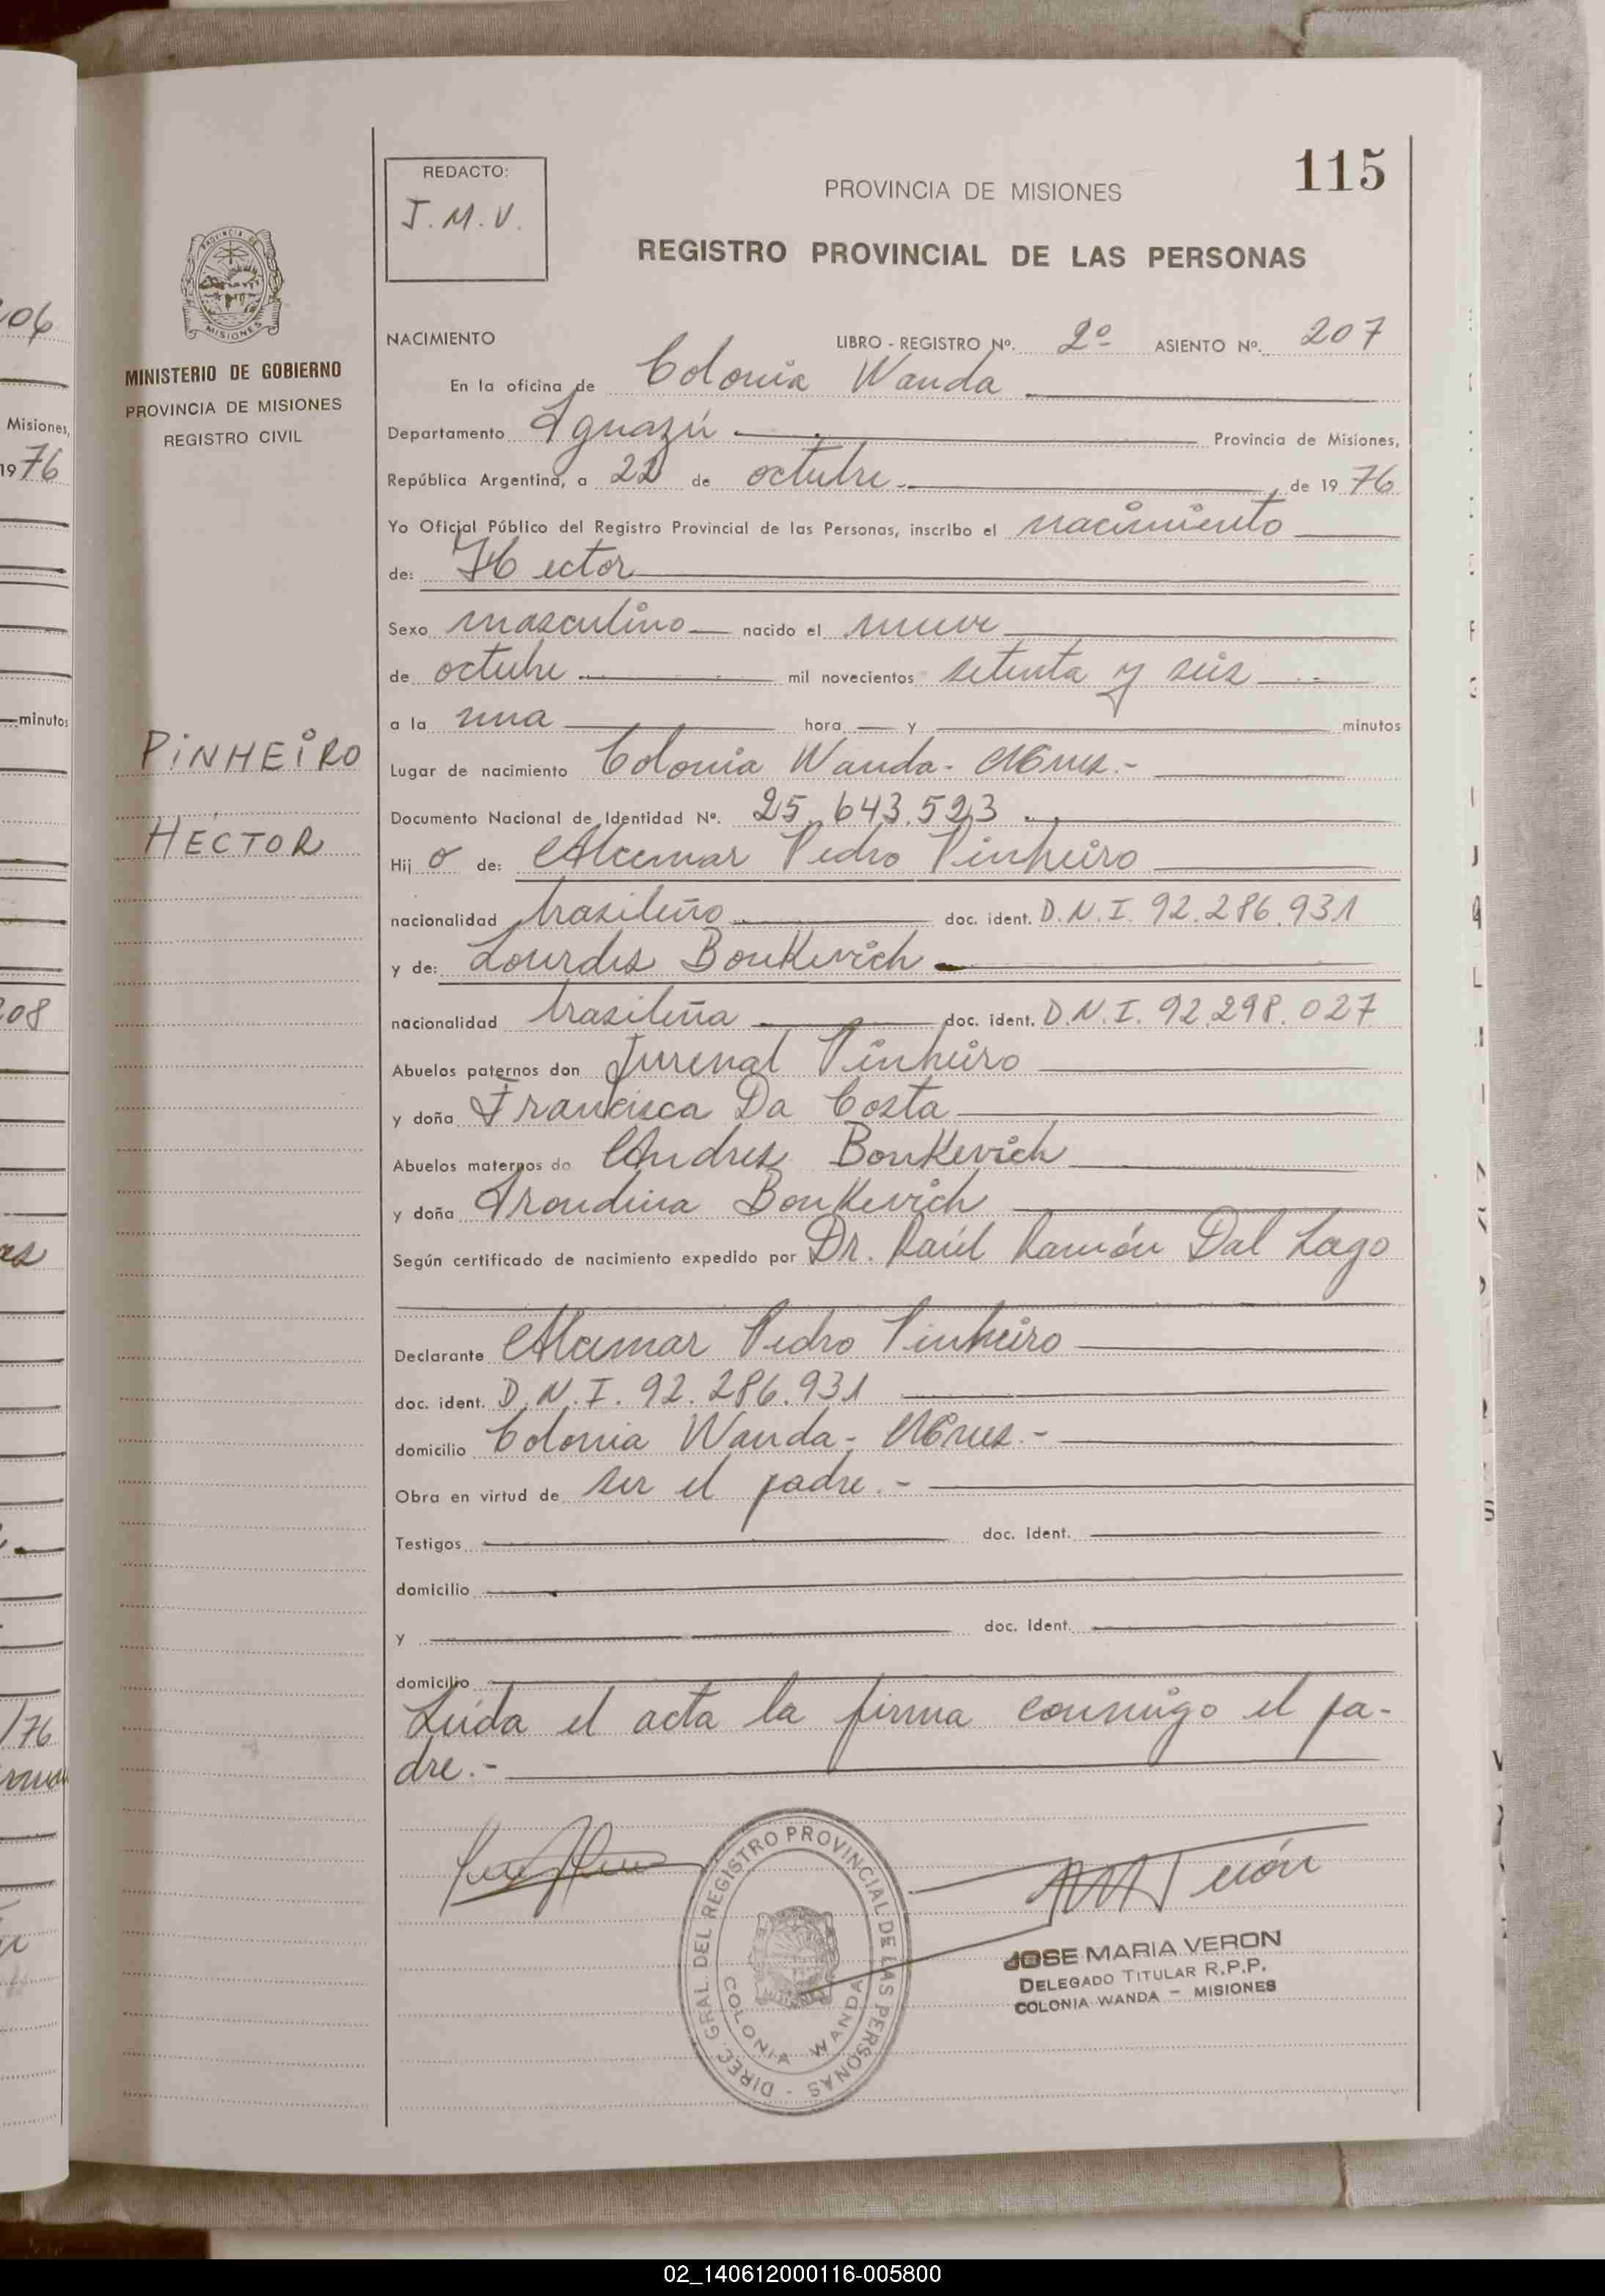 115
REDACTO:
J. M. V.
PROVINCIA DE MISIONES
REGISTRO PROVINCIAL DE LAS PERSONAS
PROVINCIA DE
MISIONES
MINISTERIO DE GOBIERNO
PROVINCIA DE MISIONES
REGISTRO CIVIL
PINHEIRO
HECTOR
NACIMIENTO LIBRO - REGISTRO Nº. 2º ASIENTO Nº. 207
En la oficina de Colonia Wanda
Departamento Iguazú Provincia de Misiones,
República Argentina, a 22 de octubre de 1976
Yo Oficial Público del Registro Provincial de las Personas, inscribo el nacimiento
de: Hector
Sexo masculino nacido el nueve
de octubre mil novecientos setenta y seis
a la una hora y minutos
Lugar de nacimiento Colonia Wanda - Mnes.-
Documento Nacional de Identidad Nº. 25.643.523
Hijo de: Alcemar Pedro Pinheiro
nacionalidad brasileño doc. ident. D.N.I. 92.286.931
y de: Lourdes Boukevich
nacionalidad brasileña doc. ident. D.N.I. 92.298.027
Abuelos paternos don Juvenal Pinheiro
y doña Francisca Da Costa
Abuelos maternos do Andres Boukevich
y doña Frondina Boukevich
Según certificado de nacimiento expedido por Dr. Raúl Ramón Dal Lago
Declarante Alcemar Pedro Pinheiro
doc. ident. D.N.I. 92.286.931
domicilio Colonia Wanda - Mnes.-
Obra en virtud de ser el padre.-
Testigos doc. Ident.
domicilio
y doc. Ident.
domicilio
Leída el acta la firma conmigo el pa-
dre.-
DIREC. GRAL. DEL REGISTRO PROVINCIAL DE LAS PERSONAS -
COLONIA WANDA
JOSE MARIA VERON
DELEGADO TITULAR R.P.P.
COLONIA WANDA - MISIONES
206
Misiones,
1976
minutos
208
/76
02_140612000116-005800